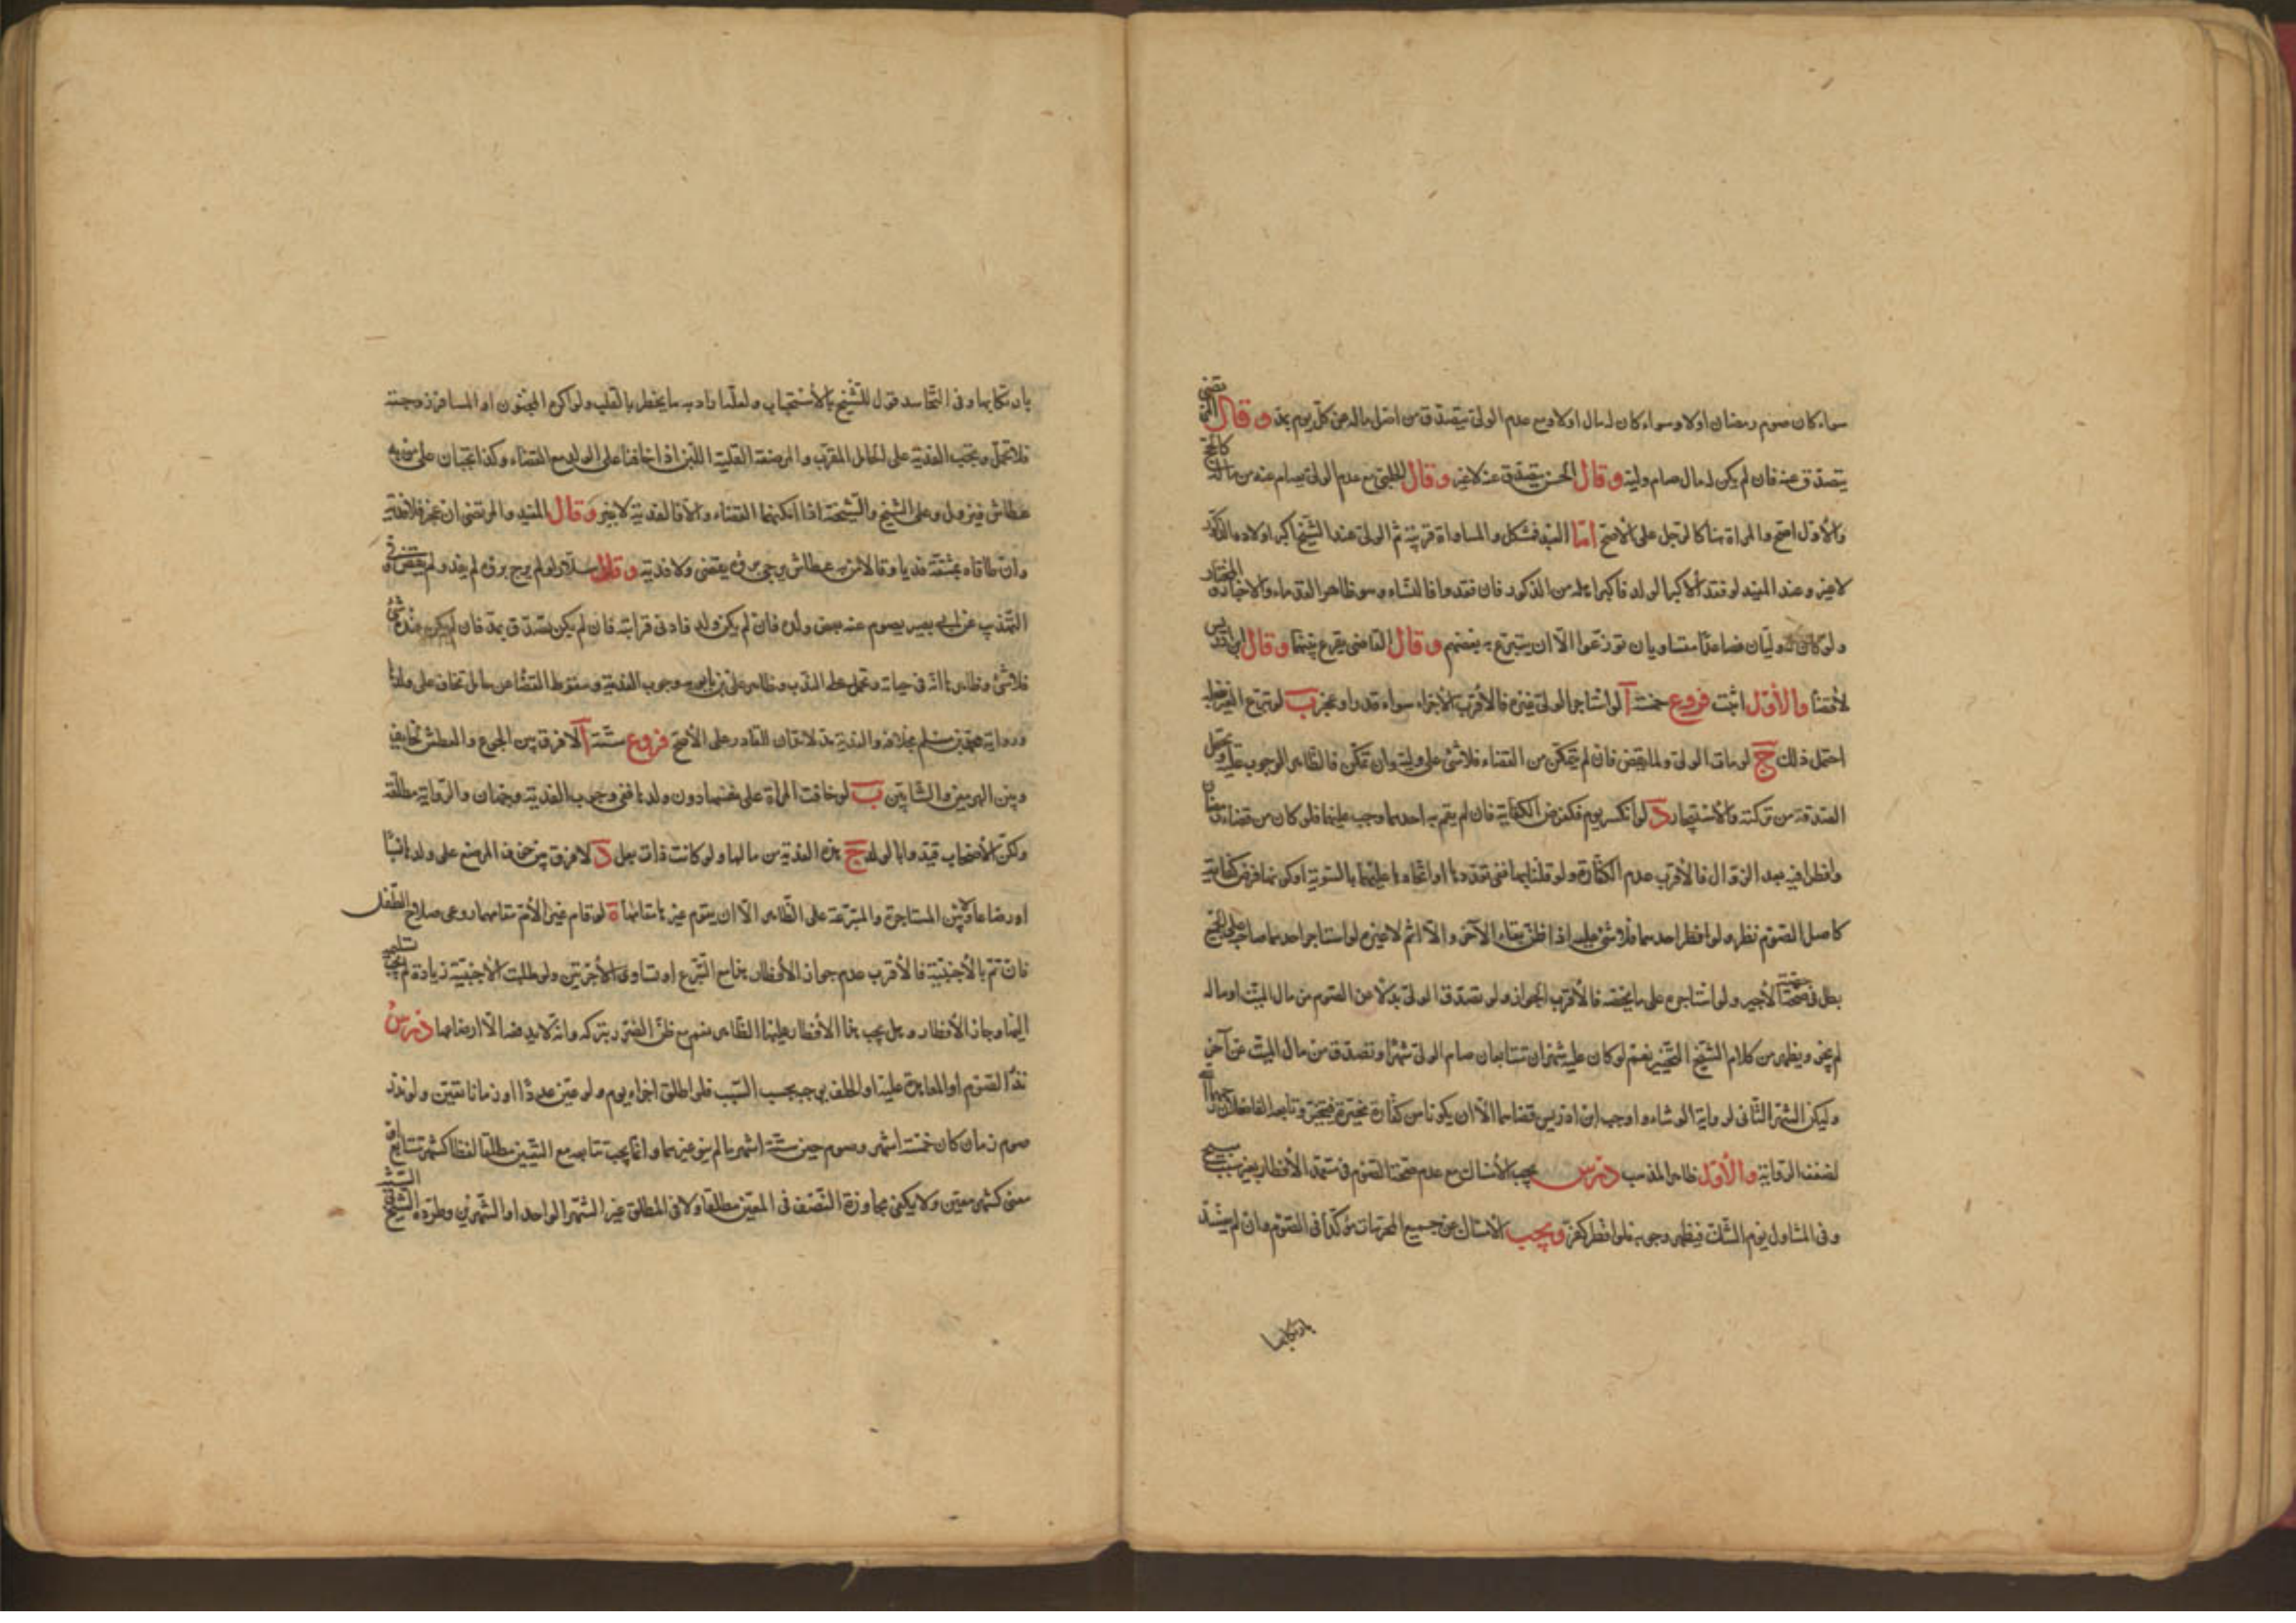 سواء كان صوم رمضان اولا وسواء كان له مال اولا ومع عدم الولى يتصدق من اصل ماله عن كل يوم بمد وقال المرتضى
يتصدق عنه فان لم يكن له مال صام وليه وقال الحسن يتصدق عنه لا غير وقال الحلبى مع عدم الولى يصام عنه من ماله كالحج
والأول اصح والمراة هنا كالرجل على الاصح اما العبد فمشكل والمساواة قريبة ثم الولى عند الشيخ اكبر اولاده الذكور
لا غير وعند المفيد لو فقد اكبر الولد فاكبر اهله من الذكور فان فقدوا فالنساء وهو ظاهر القدماء والاخبار والمختار
ولو كان له وليان فصاعدا متساويان توزعوا الا ان يتبرع به بعضهم وقال القاضى يقرع بينهما وقال ابن ادريس
لا قضاء والأول اثبت فروع خمسة آ لو استاجر الولى غيره فالأقرب الاجزاء سواء قدر او عجز ب لو تبرع الغير بفعله
احتمل ذلك ج لو مات الولى ولما يقض فان لم يتمكن من القضاء فلا شئ على وليه وان تمكن فالظاهر الوجوب عليه ويحتمل
الصدقة من تركته والاستيجار د لو انكسر يوم فكفرض الكفاية فان لم يقم به احدهما وجب عليهما فلو كان من قضاء رمضان
وافطرا فيه بعد الزوال فالأقرب عدم الكفارة ولو قلنا بها ففى تعددها او اتحادها عليهما بالسوية او كونها فرض كفاية
كاصل الصوم نظر ولو افطر احدهما فلا شئ عليه اذا ظن بقاء الآخر والا اثم لا غير ه لو استاجر احدهما صاحبه على الجميع
بطل فى حصة الأجير ولو استاجره على ما يخصه فالأقرب الجواز ولو تصدق الولى بدلا عن الصوم من مال الميت او ماله
لم يجز ويظهر من كلام الشيخ التخيير نعم لو كان عليه شهران متتابعان صام الولى شهرا وتصدق من مال الميت عن آخر
وليكن الشهر الثانى لرواية الوشاء واوجب ابن ادريس قضاءهما الا ان يكونا من كفارة مخيرة فيتخير وتابعه الفاضلان
لضعف الرواية والأول ظاهر المذهب درس يجب الأمساك مع عدم صحة الصوم فى متعمد الأفطار بغير سبب مبيح
وفى المتناول يوم الشك فيظهر وجوبه فلو افطر كفر ويجب الامساك عن جميع المحرمات مؤكدا فى الصوم وان لم يفسد
بارتكابها
بارتكابها وفى التحاسد قول للشيخ بالأستحباب ولعله اراد به ما يخطر بالقلب ولو اكره المجنون او المسافر زوجته
فلا تحمل وتجب الفدية على الحامل المقرب والمرضعة القليلة اللبن اذا خافتا على الولد مع القضاء وكذا تجبان على من به
عطاش فيزول وعلى الشيخ والشيخة اذا امكنهما القضاء والا فالفدية لا غير وقال المفيد والمرتضى ان عجز فلا فدية
وان طاقاه بمشقة فديا وقالا من به عطاش يرجى برؤه يقضى ولا فدية وقال سلار لو لم يرج برؤه لم يفد ولم يقض وفى
التهذيب عن ابى بصير يصوم عنه بعض ولده فان لم يكن ولد فادنى قرابته فان لم يكن تصدق بمد فان لم يكن عنده شئ
فلا شئ وظاهرها انه فى حياته وتحمل على الندب وظاهر على بن بابويه وجوب الفدية وسقوط القضاء عن حامل تخاف على ولدها
ورواية محمد بن مسلم بخلافه والفدية مد لا مدان للقادر على الأصح فروع ستة آ لا فرق بين الجوع والعطش لخايف
وبين الهرمين والشابين ب لو خافت المراة على نفسها دون ولدها ففى وجوب الفدية وجهان والرواية مطلقة
ولكن الأصحاب قيدوا بالولد ج هذه الفدية من مالها ولو كانت ذات بعل د لا فرق بين خوف المرضع على ولدها نسبا
او رضاعا ولا بين المستاجرة والمتبرعة على الظاهر الا ان يقوم غيرها مقامها ة لو قام غير الأم مقامها روعى صلاح الطفل
فان تم بالأجنبية فالأقرب عدم جواز الأفطار هذا مع التبرع او تساوى الأجرتين ولو طلبت الأجنبية زيادة لم يجب تسليمه
اليها وجاز الأفطار وهل يجب هذا الأفطار عليها الظاهر نعم مع ظن الضرر بتركه وانه لا يدفعه الا ارضاعها درس
نذر الصوم او المعاهدة عليه او الحلف يوجبه بحسب السبب فلو اطلق اجزاه يوم ولو عين عددا او زمانا تعين ولو نذر
صوم زمان كان خمسة اشهر وصوم حين ستة اشهر ما لم ينو غيرهما وانما يجب تتابعه مع التعيين مطلقا لفظا كشهر متتابع او
معنى كشهر معين ولا يكفى مجاوزة النصف فى المعين مطلقا ولا فى المطلق غير الشهر الواحد او الشهرين وطرده الشيخ